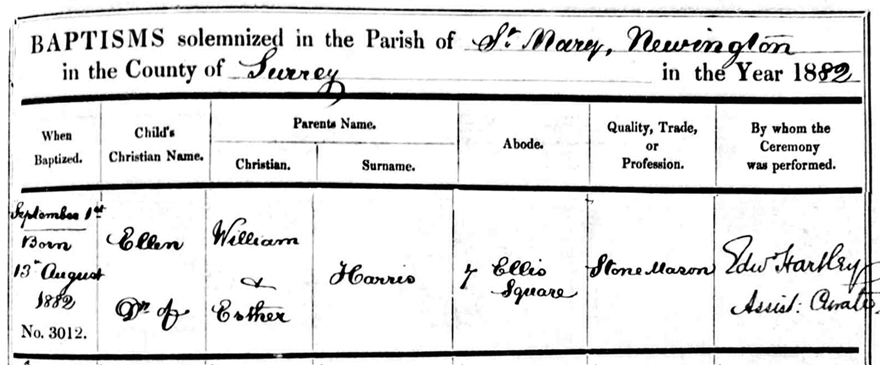 BAPTISMS solemnized in the Parish of St Mary, Newington
in the County of Surrey in the Year 1882
When Baptized.
Child's Christian Name.
Parents Name.
Christian.
Surname.
Abode.
Quality, Trade, or Profession.
By whom the Ceremony was performed.
September 1st
Born
13th August
1882
No. 3012.
Ellen
Dr of
William
&
Esther
Harris
7 Ellis
Square
Stone Mason
Edwd Hartley
Assist: Curate.